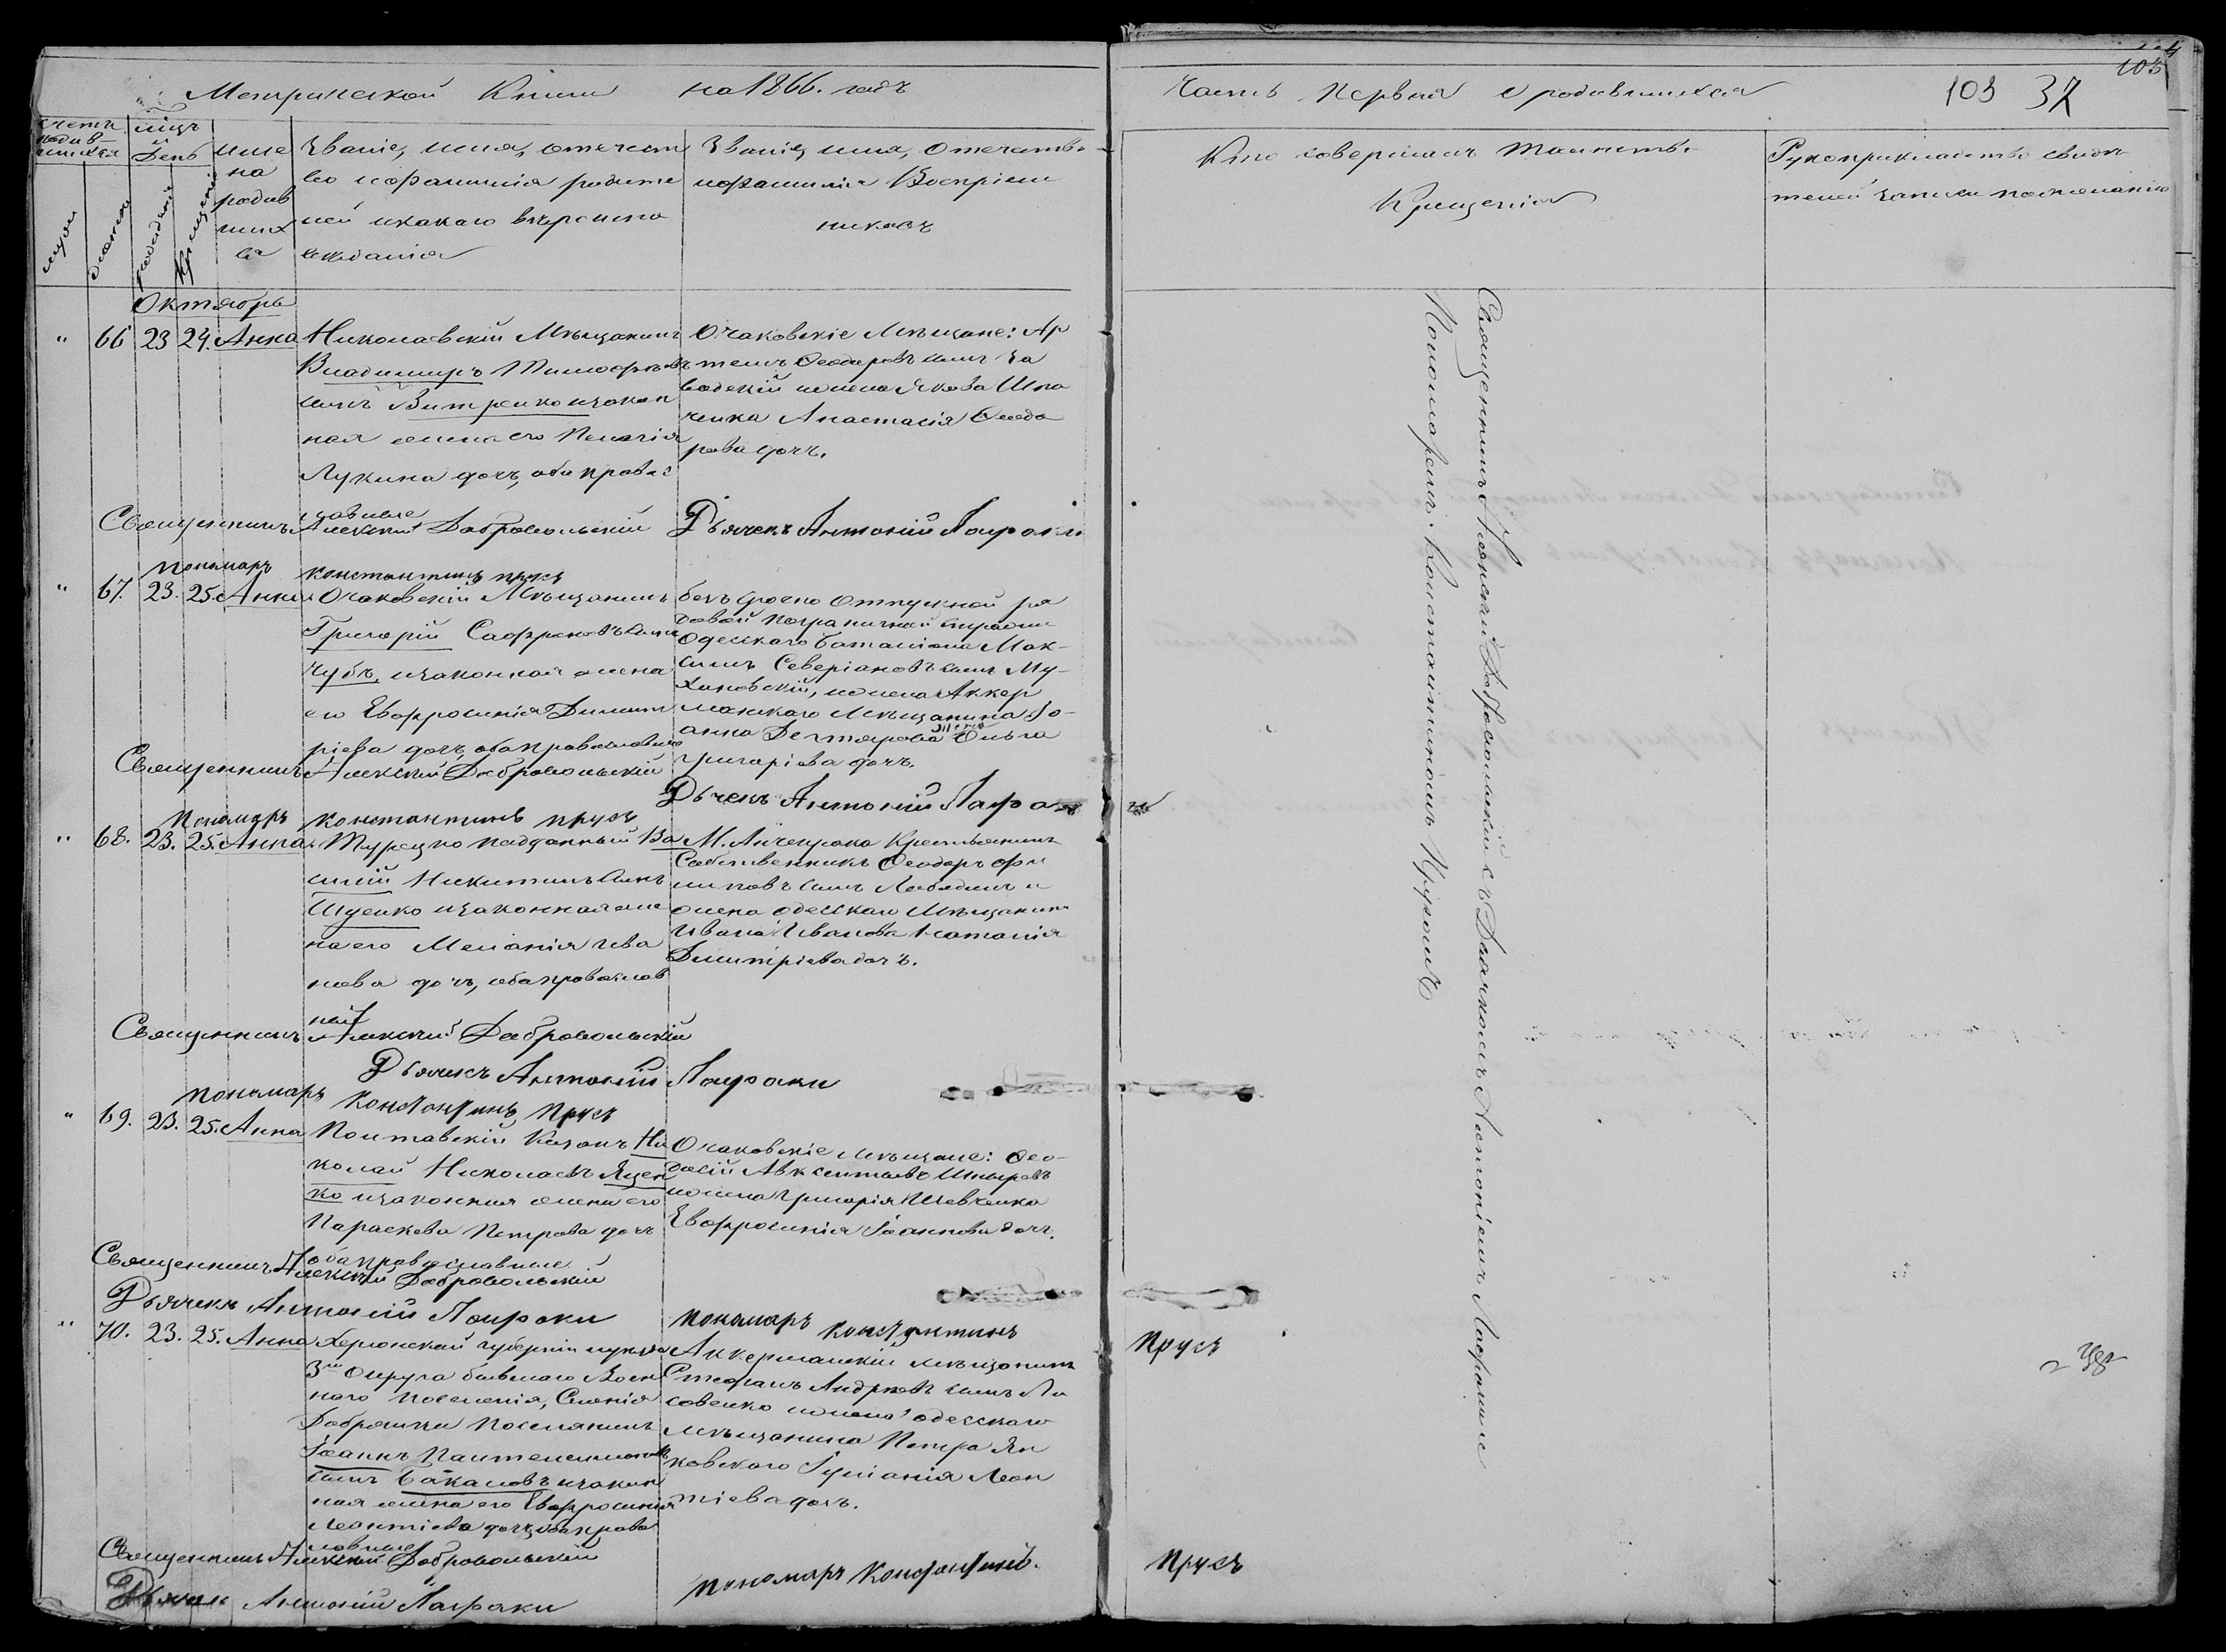 Метрической Книги на 1866. годъ
Часть Первая о родившихся
103 37
103
счетъ родив-шихся
мѣсяцъ и День
муж
женск
рожденія
Крещенія
имена родив шихся
Званіе, имя, отечест
во и фамилія родите
лей и какаго вѣроиспо
вѣданія
Званіе, имя, Отечество
и фамилія Воспріем
никовъ
Кто совершалъ Таинство
Крещенія
Рукоприкладство свидѣ
телей записи по желанію
Октябрь
" 66 23 24. Анна
Николаевскій Мѣщанинъ
Владимиръ Тимофѣевъ
сынъ Витренко и закон
ная жена его Пелагія
Лукина дочь, оба правос
лавные
Очаковскіе Мѣщане: Ар
темъ Ѳеодоровъ сынъ За
водскій и жена Якова Шпа
ченка Анастасія Ѳеодо
рова дочь.
Священникъ Алексій Добровольскій Дьячекъ Антоній Лаφраки
пономарь Константинъ Прусъ
" 67. 23. 25. Анна
Очаковскій Мѣщанинъ
Григорій Сафроновъ сынъ
Чубъ, и законная жена
его Евфросинія Димит
ріева дочь, оба православные
безъ срочно отпускной ря
довой Пограничной стражи
Одесскаго баталіона Мак-
симъ Северіановъ сынъ Му-
хиновскій, и жена Аккер
манскаго Мѣщанина Іо-
анна Дегтярова Ольга
Григоріева дочь.
Священникъ Алексій Добровольскій
Дьячекъ Антоній
пономарь Константинъ Прусъ
" 68. 23. 25. Анна
Турецко подданный Ва
силій Никитинъ сынъ
Шуенко и законная же
на его Меланія Ива
нова дочь, оба православ
ные
М. Анчекрака Крестьянинъ
Собственникъ Ѳеодоръ Фи
липовъ сынъ Лебединъ и
жена одесскаго Мѣщанина
Ивана Иванова Наталія
Димитріева дочь.
Священникъ Алексій Добровольскій
Дьячекъ Антоній Лаφраки
пономарь Константинъ Прусъ
" 69. 23. 25. Анна
Полтавскій Казакъ Ни
колай Николаевъ Яцен
ко и законная жена его
Параскева Петрова дочь
оба православные
Очаковскіе мѣщане: Ѳео-
досій Авксентьевъ Шпыревъ
и жена Григорія Шевченка
Евфросинія Іоаннова дочь.
Священникъ Алексій Добровольскій
Дьячекъ Антоній Лаφраки пономарь Константинъ Прусъ
" 70. 23. 25. Анна
Херсонской губерніи
3го Округа бывшаго Воен
наго поселенія, Селенія
Добрянки поселянинъ
Іоаннъ Пантелеимоновъ
сынъ Бакаловъ и закон
ная жена его Евфросинія
Леонтіева дочь, оба право
славные
Аккерманскій мѣщанинъ
Стефанъ Андреевъ сынъ Ли
совенко и жена одесскаго
мѣщанина Петра Ян
ковскаго Іуліанія Леон
тіева дочь.
Священникъ Алексій Добровольскій
Дьячекъ Антоній Лаφраки пономарь Константинъ. Прусъ
Священникъ Алексій Добровольскій съ Дьячкомъ Антоніемъ
Пономаремъ Константиномъ Прусомъ